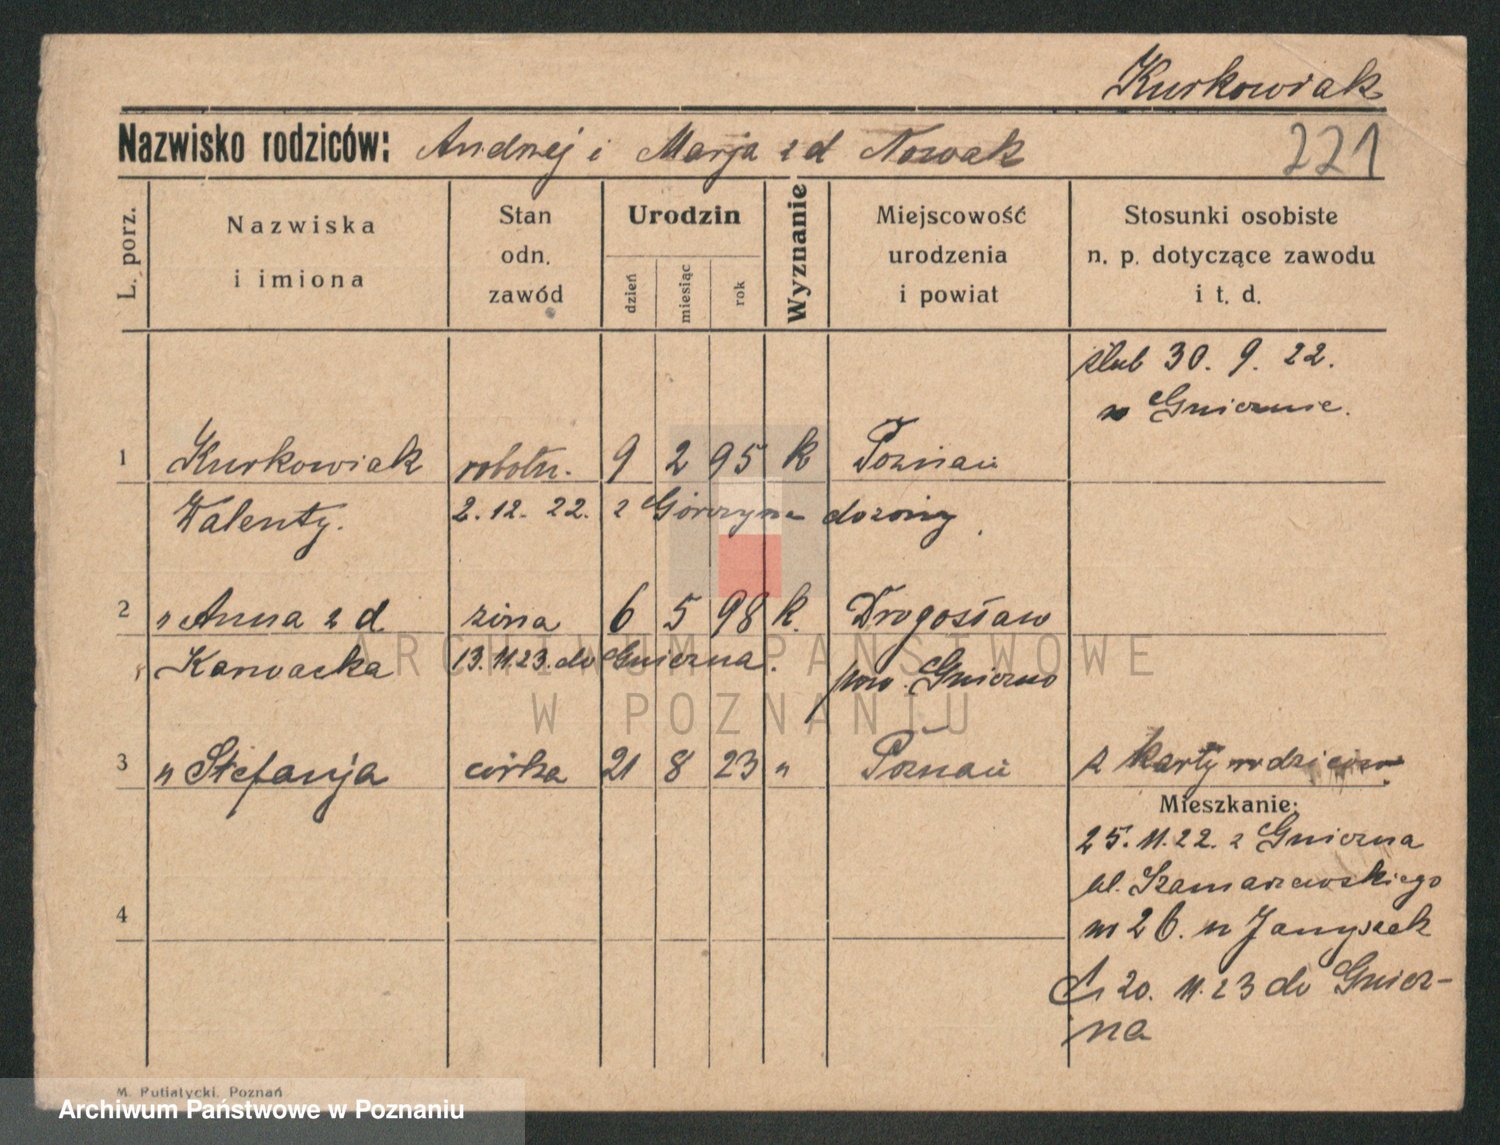 Kurkowiak
Nazwisko rodziców: Andrzej i Marja z d Nowak 221
L. porz.
Nazwiska
i imiona
Stan
odn.
zawód
Urodzin
dzień
miesiąc
rok
Wyznanie
Miejscowość
urodzenia
i powiat
Stosunki osobiste
n. p. dotyczące zawodu
i t. d.
ślub 30. 9. 22.
w Gnieznie.
1 Kurkowiak robotn. 9 2 95 k Poznań
Walenty. 2. 12. 22. z Górczyna
2 " Anna z d żona 6 5 98 k. Drogosław
Karwacka 13. 11. 23. do Gniezna. pow. Gniezno
3 " Stefanja córka 21 8 23 " Poznań z karty rodziców
Mieszkanie:
25. 11. 22. z Gniezna
ul. Szamarzewskiego
nr 26. u Janyszek
20. 11. 23 do Gniez-
na
4
M. Putiatycki, Poznań
ARCHIWUM PAŃSTWOWE
W POZNANIU
Archiwum Państwowe w Poznaniu